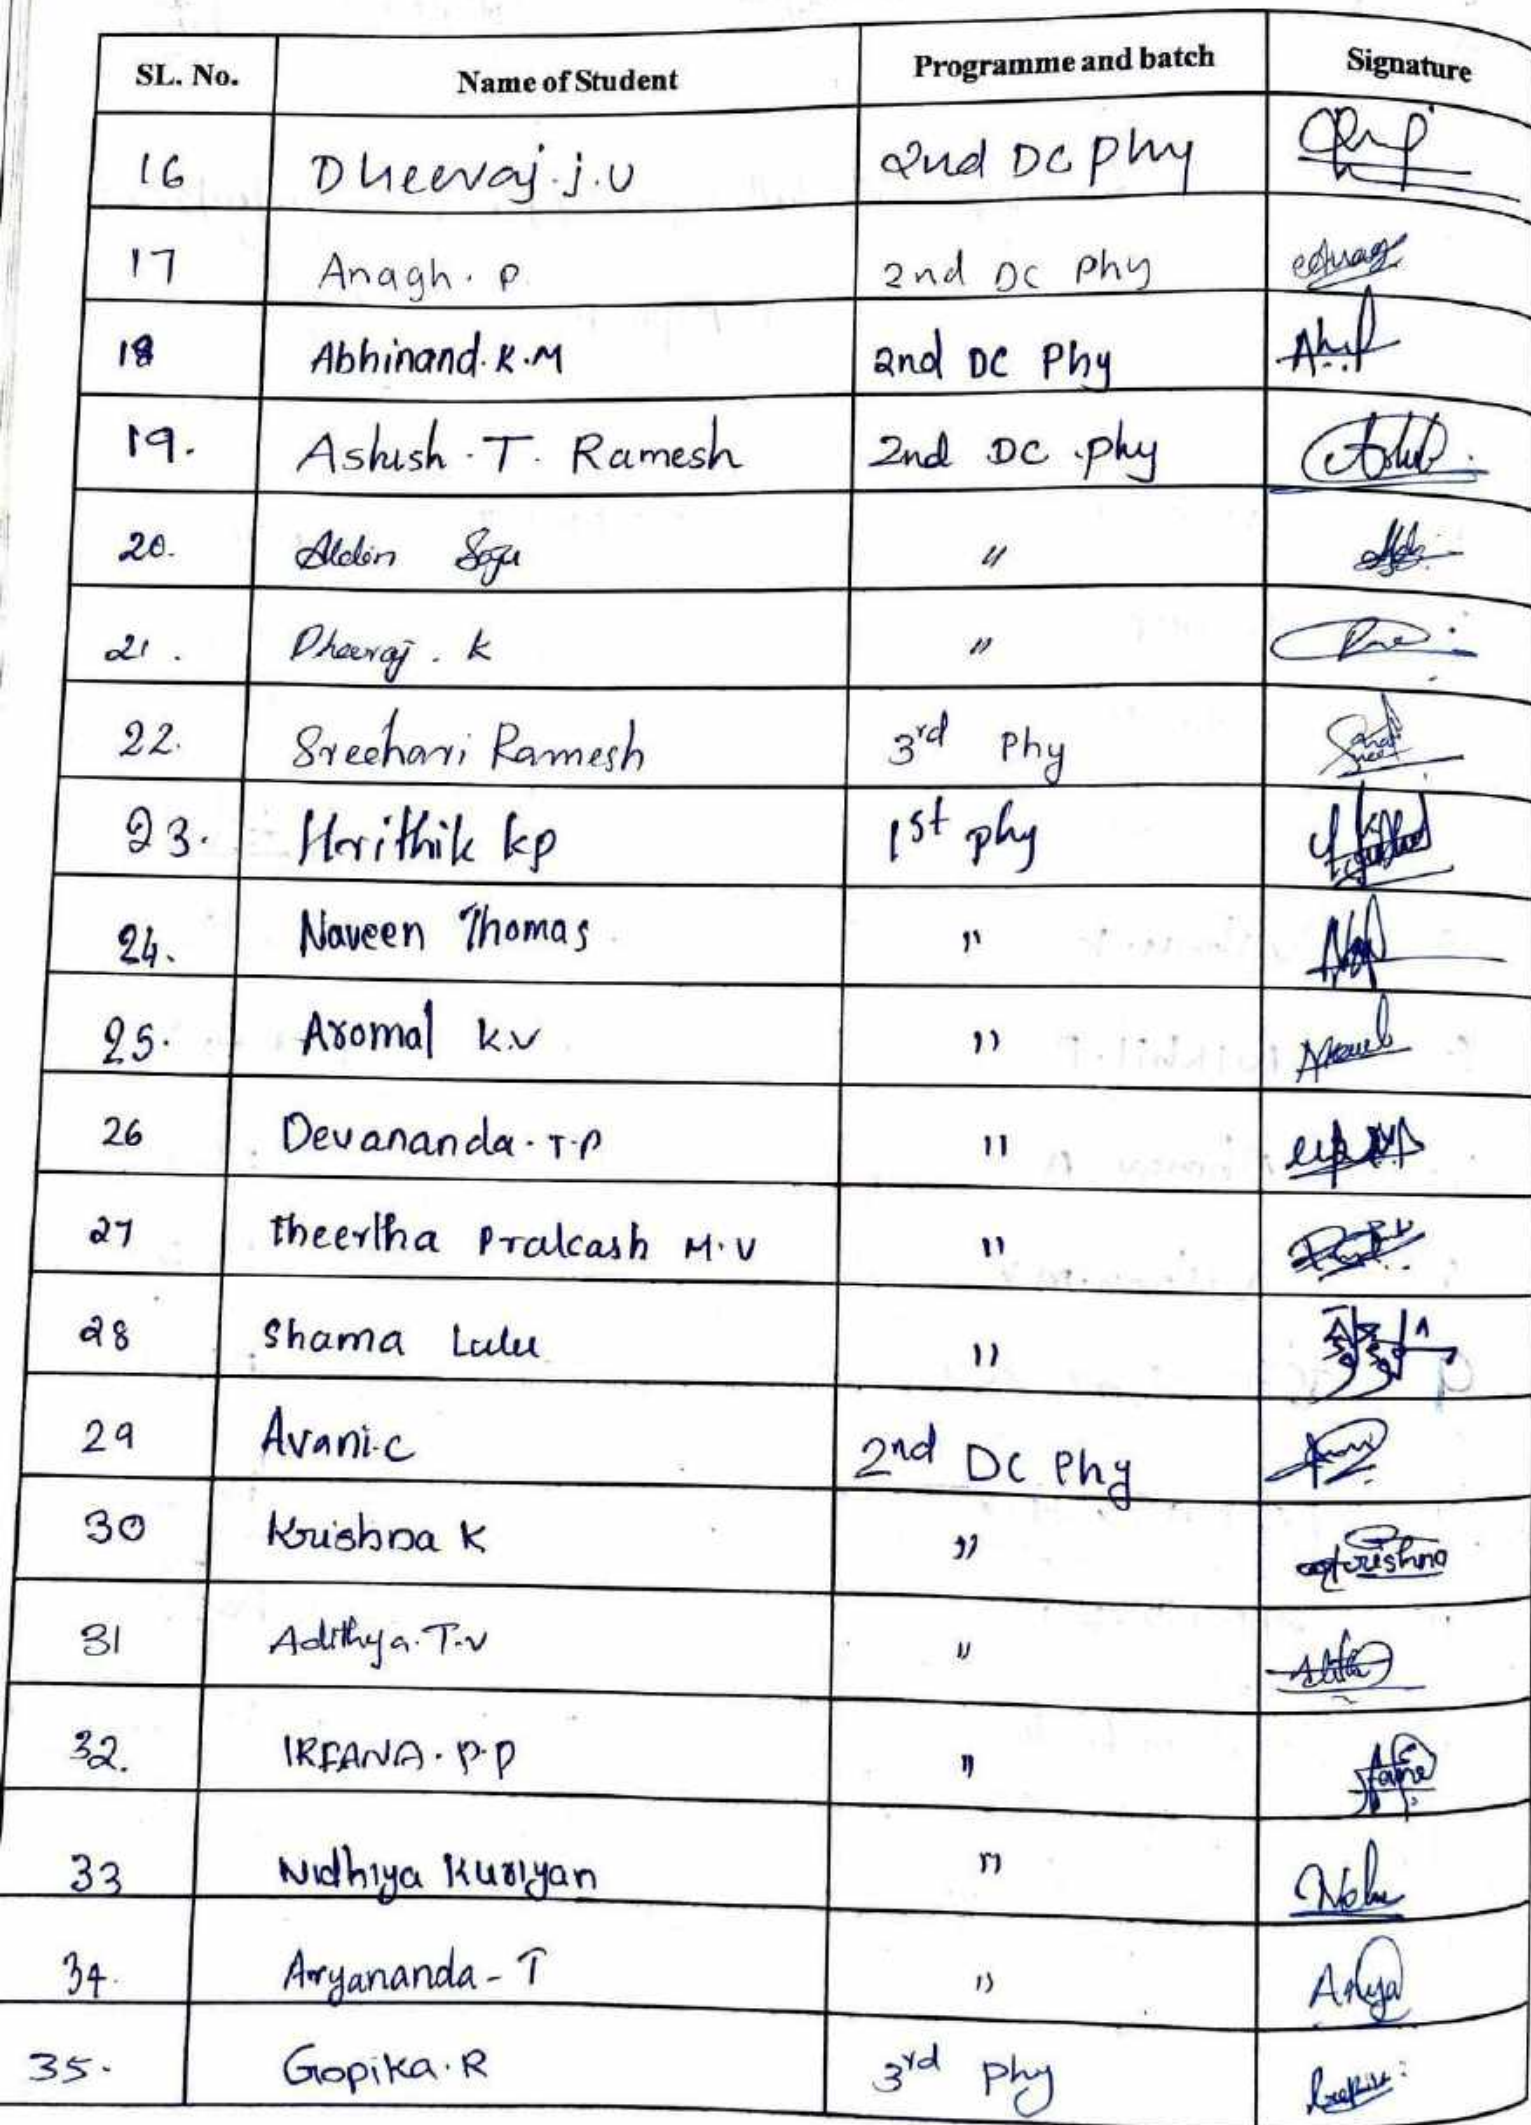 SL. No. Name of Student Programme and batch Signature
16 Dheeraj.j.U 2nd DC Phy
17 Anagh. P 2nd DC Phy
18 Abhinand.K.M 2nd DC Phy
19. Ashish.T. Ramesh 2nd DC .phy
20. Aldin Soju "
21. Dheeraj. K "
22. Sreehari Ramesh 3rd Phy
23. Hrithik kp 1st phy
24. Naveen Thomas "
25. Aromal K.V "
26 Devananda.T.P "
27 theertha Prakash M.V "
28 Shama Lulu "
29 Avani.C 2nd DC Phy
30 Krishna K " Krishna
31 Adithya.T.V "
32. IRFANA.P.P "
33 Nidhiya Kuriyan "
34. Aryananda - T " Arya
35. Gopika.R 3rd Phy